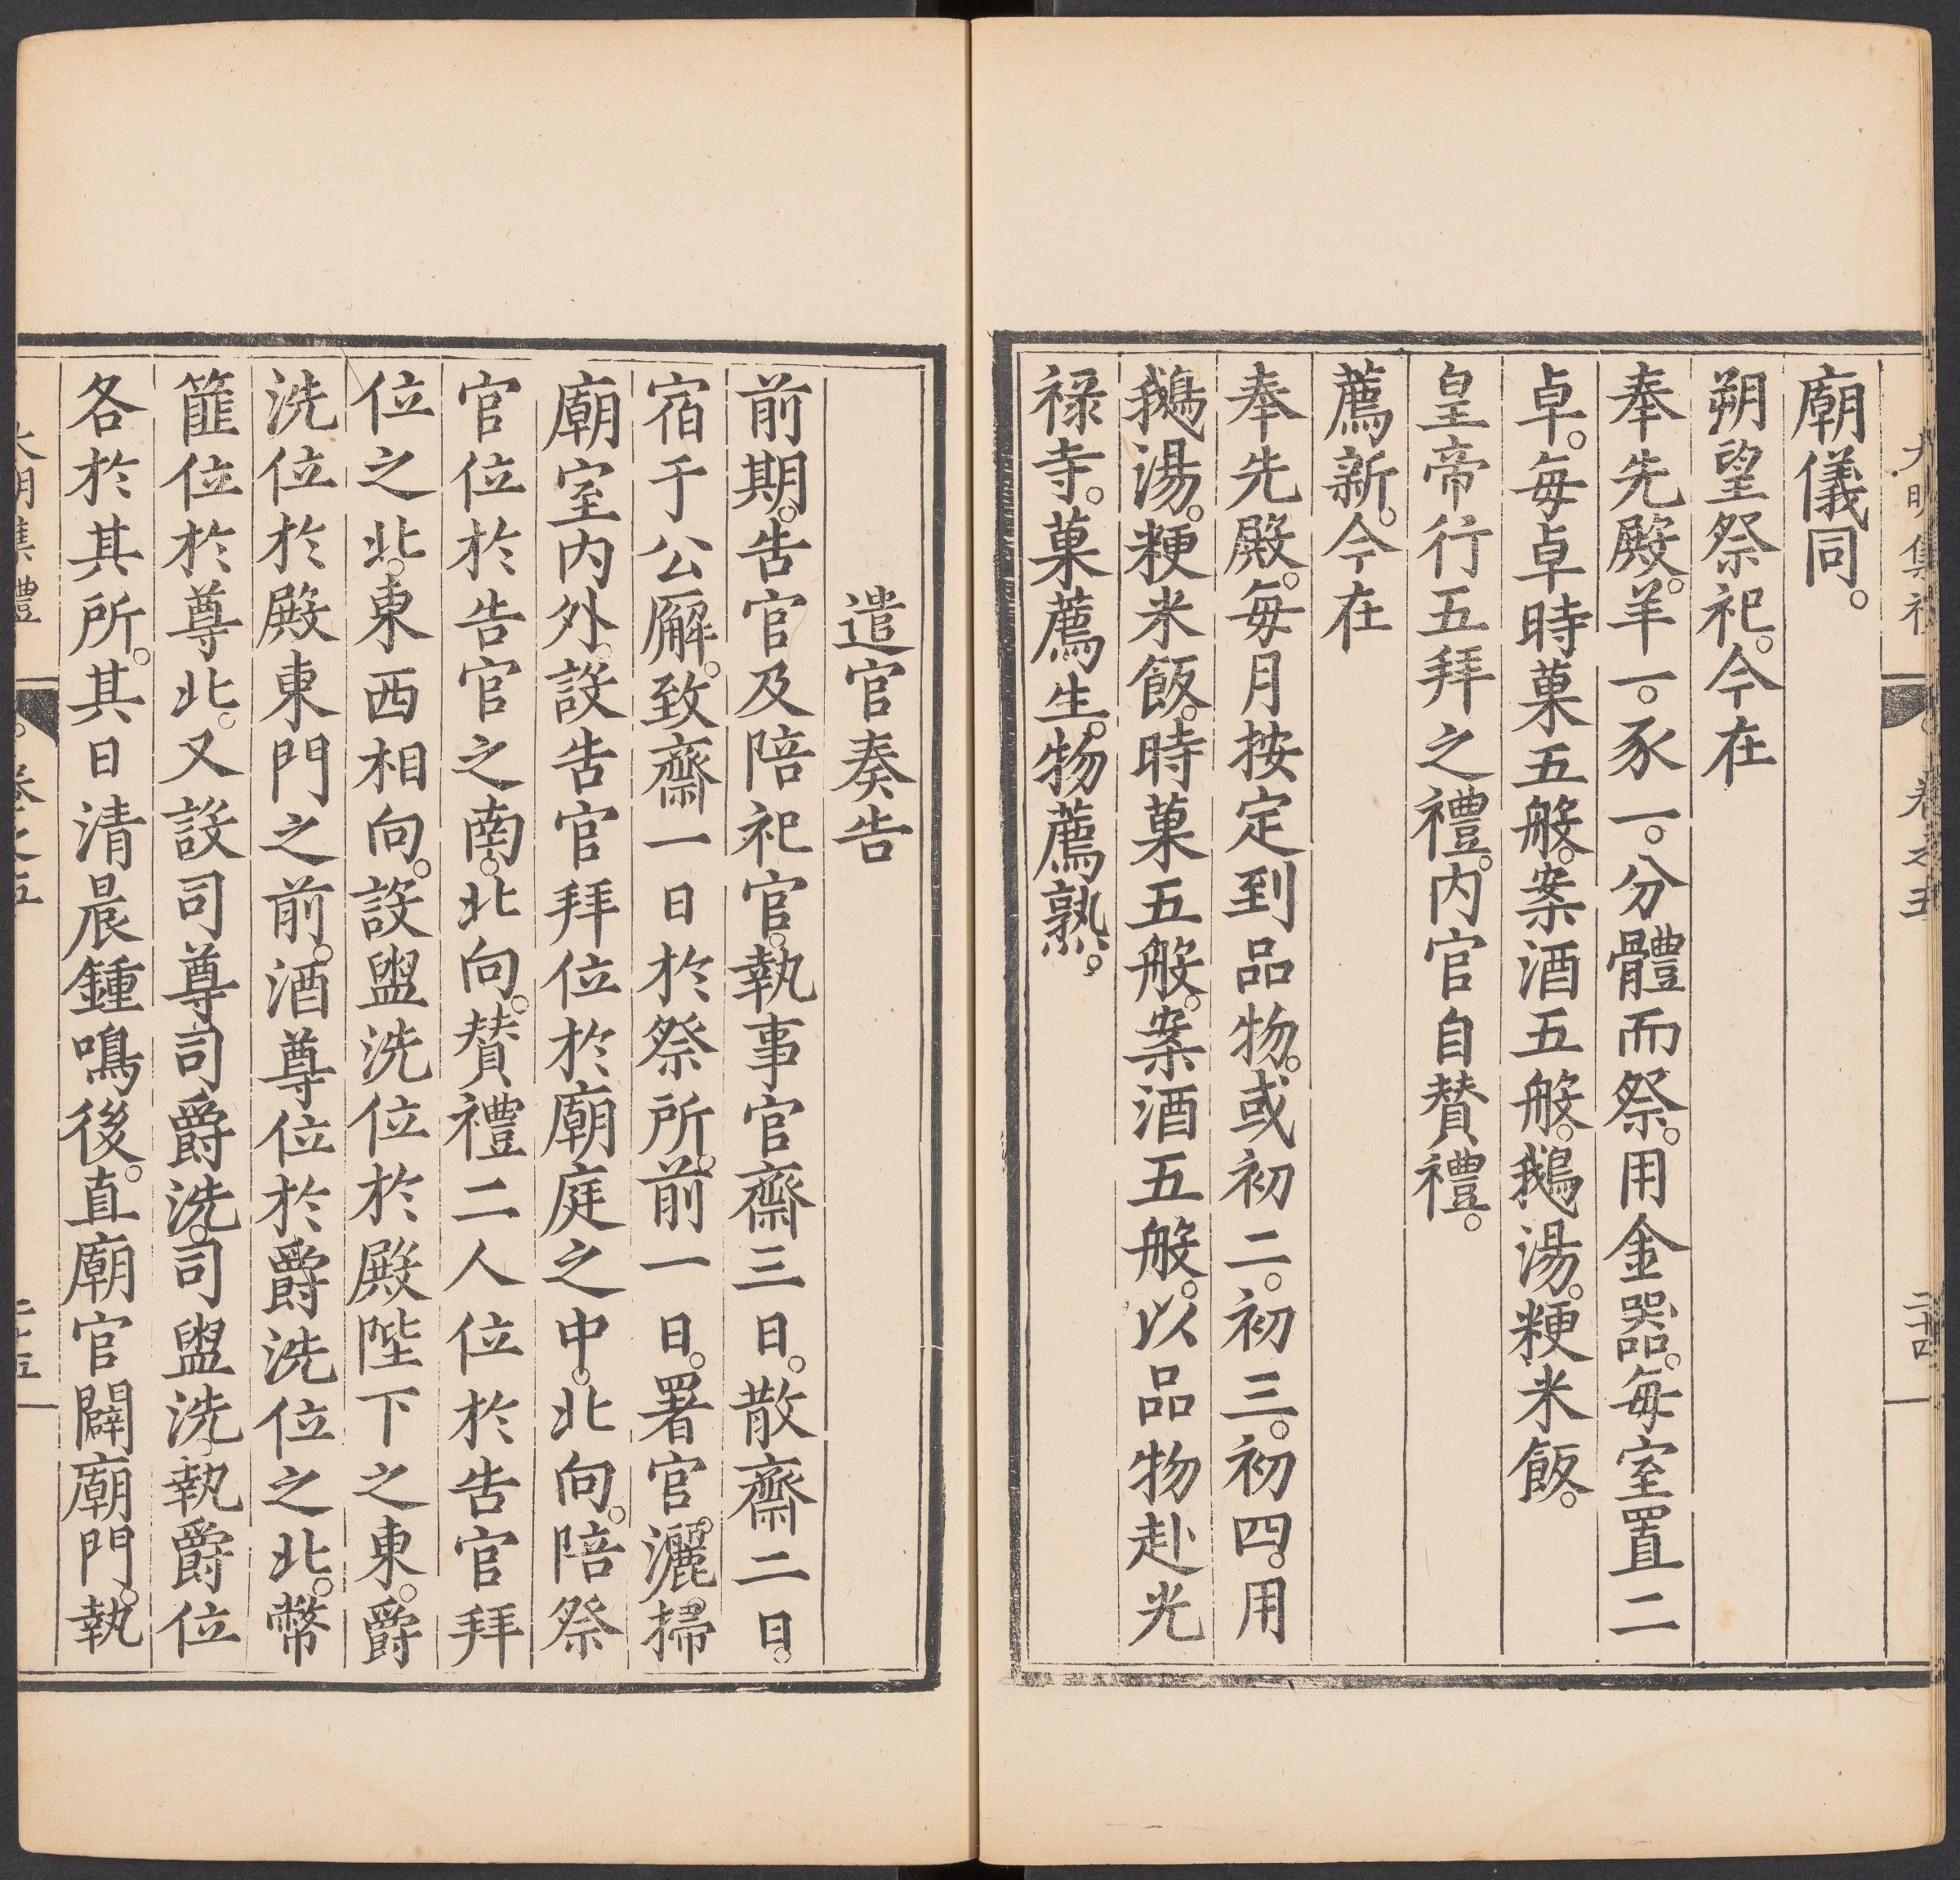 大明集禮 卷之五 二十四
廟儀同。
朔望祭祀。今在
奉先殿。羊一。豕一。分體而祭。用金器。每室置二
卓。每卓時菓五般。案酒五般。鵝湯。粳米飯。
皇帝行五拜之禮。内官自賛禮。
薦新。今在
奉先殿。每月按定到品物。或初二。初三。初四。用
鵝湯。粳米飯。時菓五般。案酒五般。以品物赴光
禄寺。菓薦生。物薦熟。
遣官奏告
前期。告官及陪祀官。執事官齋三日。散齋二日。
宿于公廨。致齋一日於祭所。前一日。署官。灑。掃
廟室内外。設告官拜位於廟庭之中。北向。陪祭
官位於告官之南。北向。賛禮二人位於告官拜
位之北。東西相向。設盥洗位於殿陛下之東。爵
洗位於殿東門之前。酒尊位於爵洗位之北。幣
篚位於尊北。又設司尊司爵洗。司盥洗。執爵位
各於其所。其日清晨鍾鳴後。直廟官闢廟門。執
大明集禮 卷之五 二十五